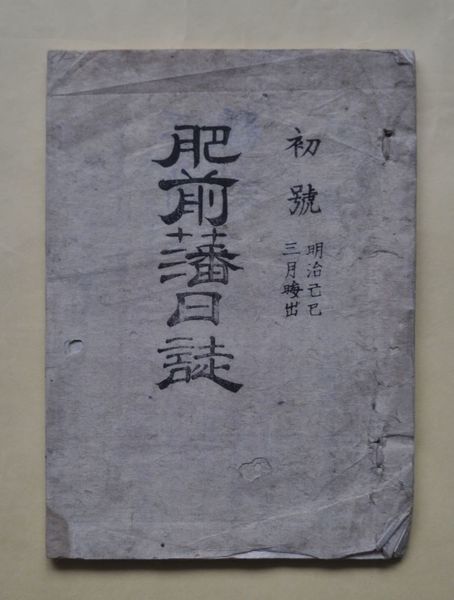 初號
明治己巳
三月晦出
肥前藩日誌